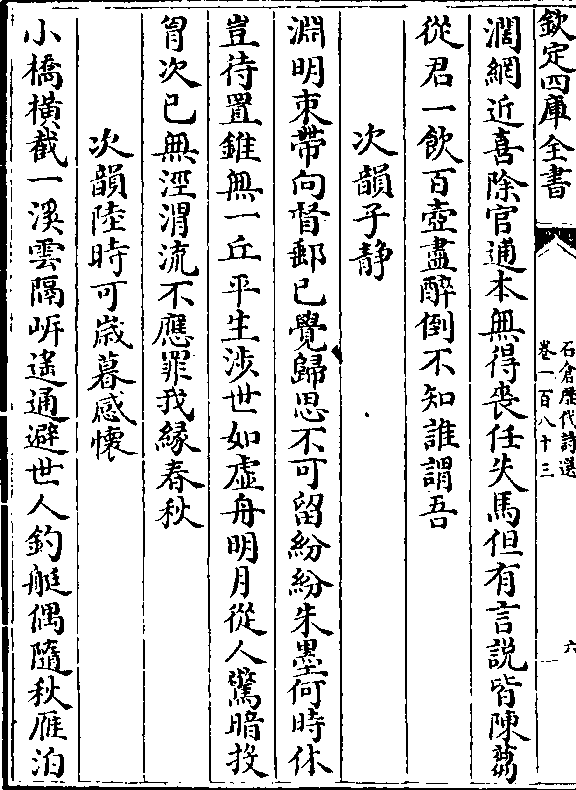 欽定四庫全書
石倉歴代詩選
卷一百八十三
六
濶網近喜除官逋本無得喪任失馬但有言說皆陳蒭
從君一飲百壺盡醉倒不知誰謂吾
次韻子静
淵明束帶向督郵已覺歸思不可留紛紛朱墨何時休
豈待置錐無一丘平生涉世如虛舟明月從人驚暗投
胷次已無涇渭流不應罪我緣春秋
次韻陸時可歳暮感懐
小橋横截一溪雲隔岍遙通避世人釣艇偶隨秋雁泊